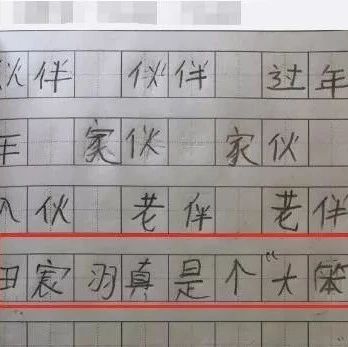 伙伴 伙伴 过年
年 家伙 家伙
入伙 老伴 老伴
田宸羽真是个“大笨